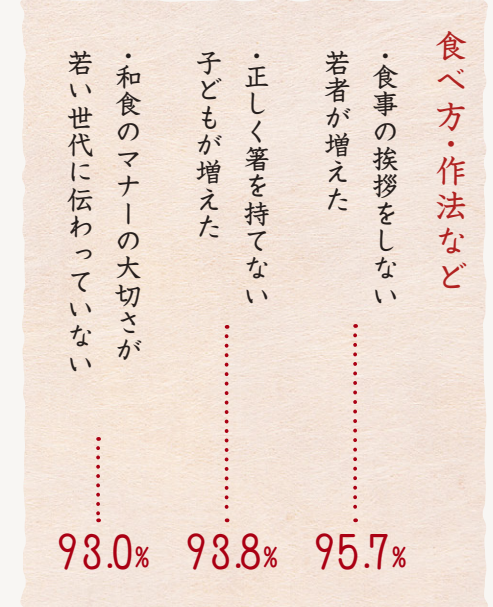 食べ方・作法など
・食事の挨拶をしない
若者が増えた
95.7%
・正しく箸を持てない
子どもが増えた
93.8%
・和食のマナーの大切さが
若い世代に伝わっていない
93.0%